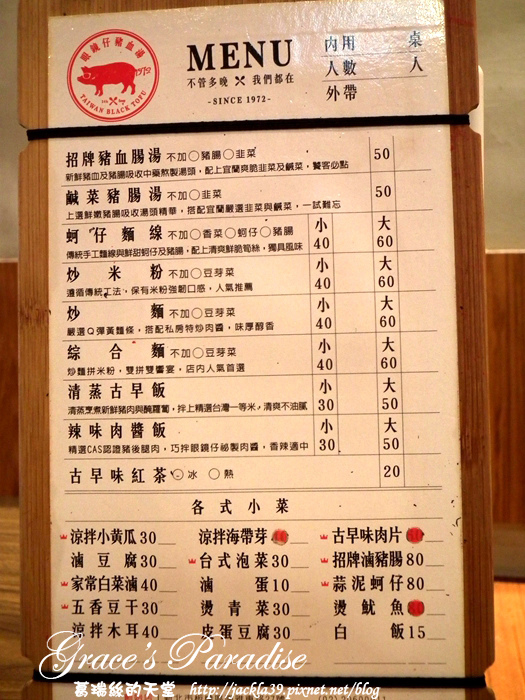 眼鏡仔豬血湯
1972
TAIWAN BLACK TOFU
MENU
不管多晚 我們都在
-SINCE 1972-
內用 桌
人數 人
外帶
招牌豬血腸湯 不加○豬腸○韭菜 50
新鮮豬血及豬腸吸收中藥熬製湯頭，配上宜蘭爽脆韭菜及鹹菜，饕客必點
鹹菜豬腸湯 不加○韭菜 50
上選鮮嫩豬腸吸收湯頭精華，搭配宜蘭嚴選韭菜與鹹菜，一試難忘
蚵仔麵線 不加○香菜○蚵仔○豬腸 小40 大60
傳統手工麵線與鮮甜蚵仔及豬腸，配上清爽鮮脆筍絲，獨具風味
炒米粉 不加○豆芽菜 小40 大60
遵循傳統工法，保有米粉強韌口感，人氣推薦
炒麵 不加○豆芽菜 小40 大60
嚴選Q彈黃麵條，搭配私房特炒肉醬，味厚醇香
綜合麵 不加○豆芽菜 小40 大60
炒麵拼米粉，雙拼雙饗宴，店內人氣首選
清蒸古早飯 小30 大50
清蒸烹煮新鮮豬肉與醃蘿蔔，拌上精選台灣一等米，清爽不油膩
辣味肉醬飯 小30 大50
精選CAS認證豬後腿肉，巧拌眼鏡仔祕製肉醬，香辣適中
古早味紅茶 ○冰 ○熱 20
各式小菜
涼拌小黃瓜30 涼拌海帶芽 古早味肉片
滷豆腐30 台式泡菜30 招牌滷豬腸80
家常白菜滷40 滷蛋10 蒜泥蚵仔80
五香豆干30 燙青菜30 燙魷魚
涼拌木耳40 皮蛋豆腐30 白飯15
Grace's Paradise
葛瑞絲的天堂 http://jackla39.pixnet.net/blog